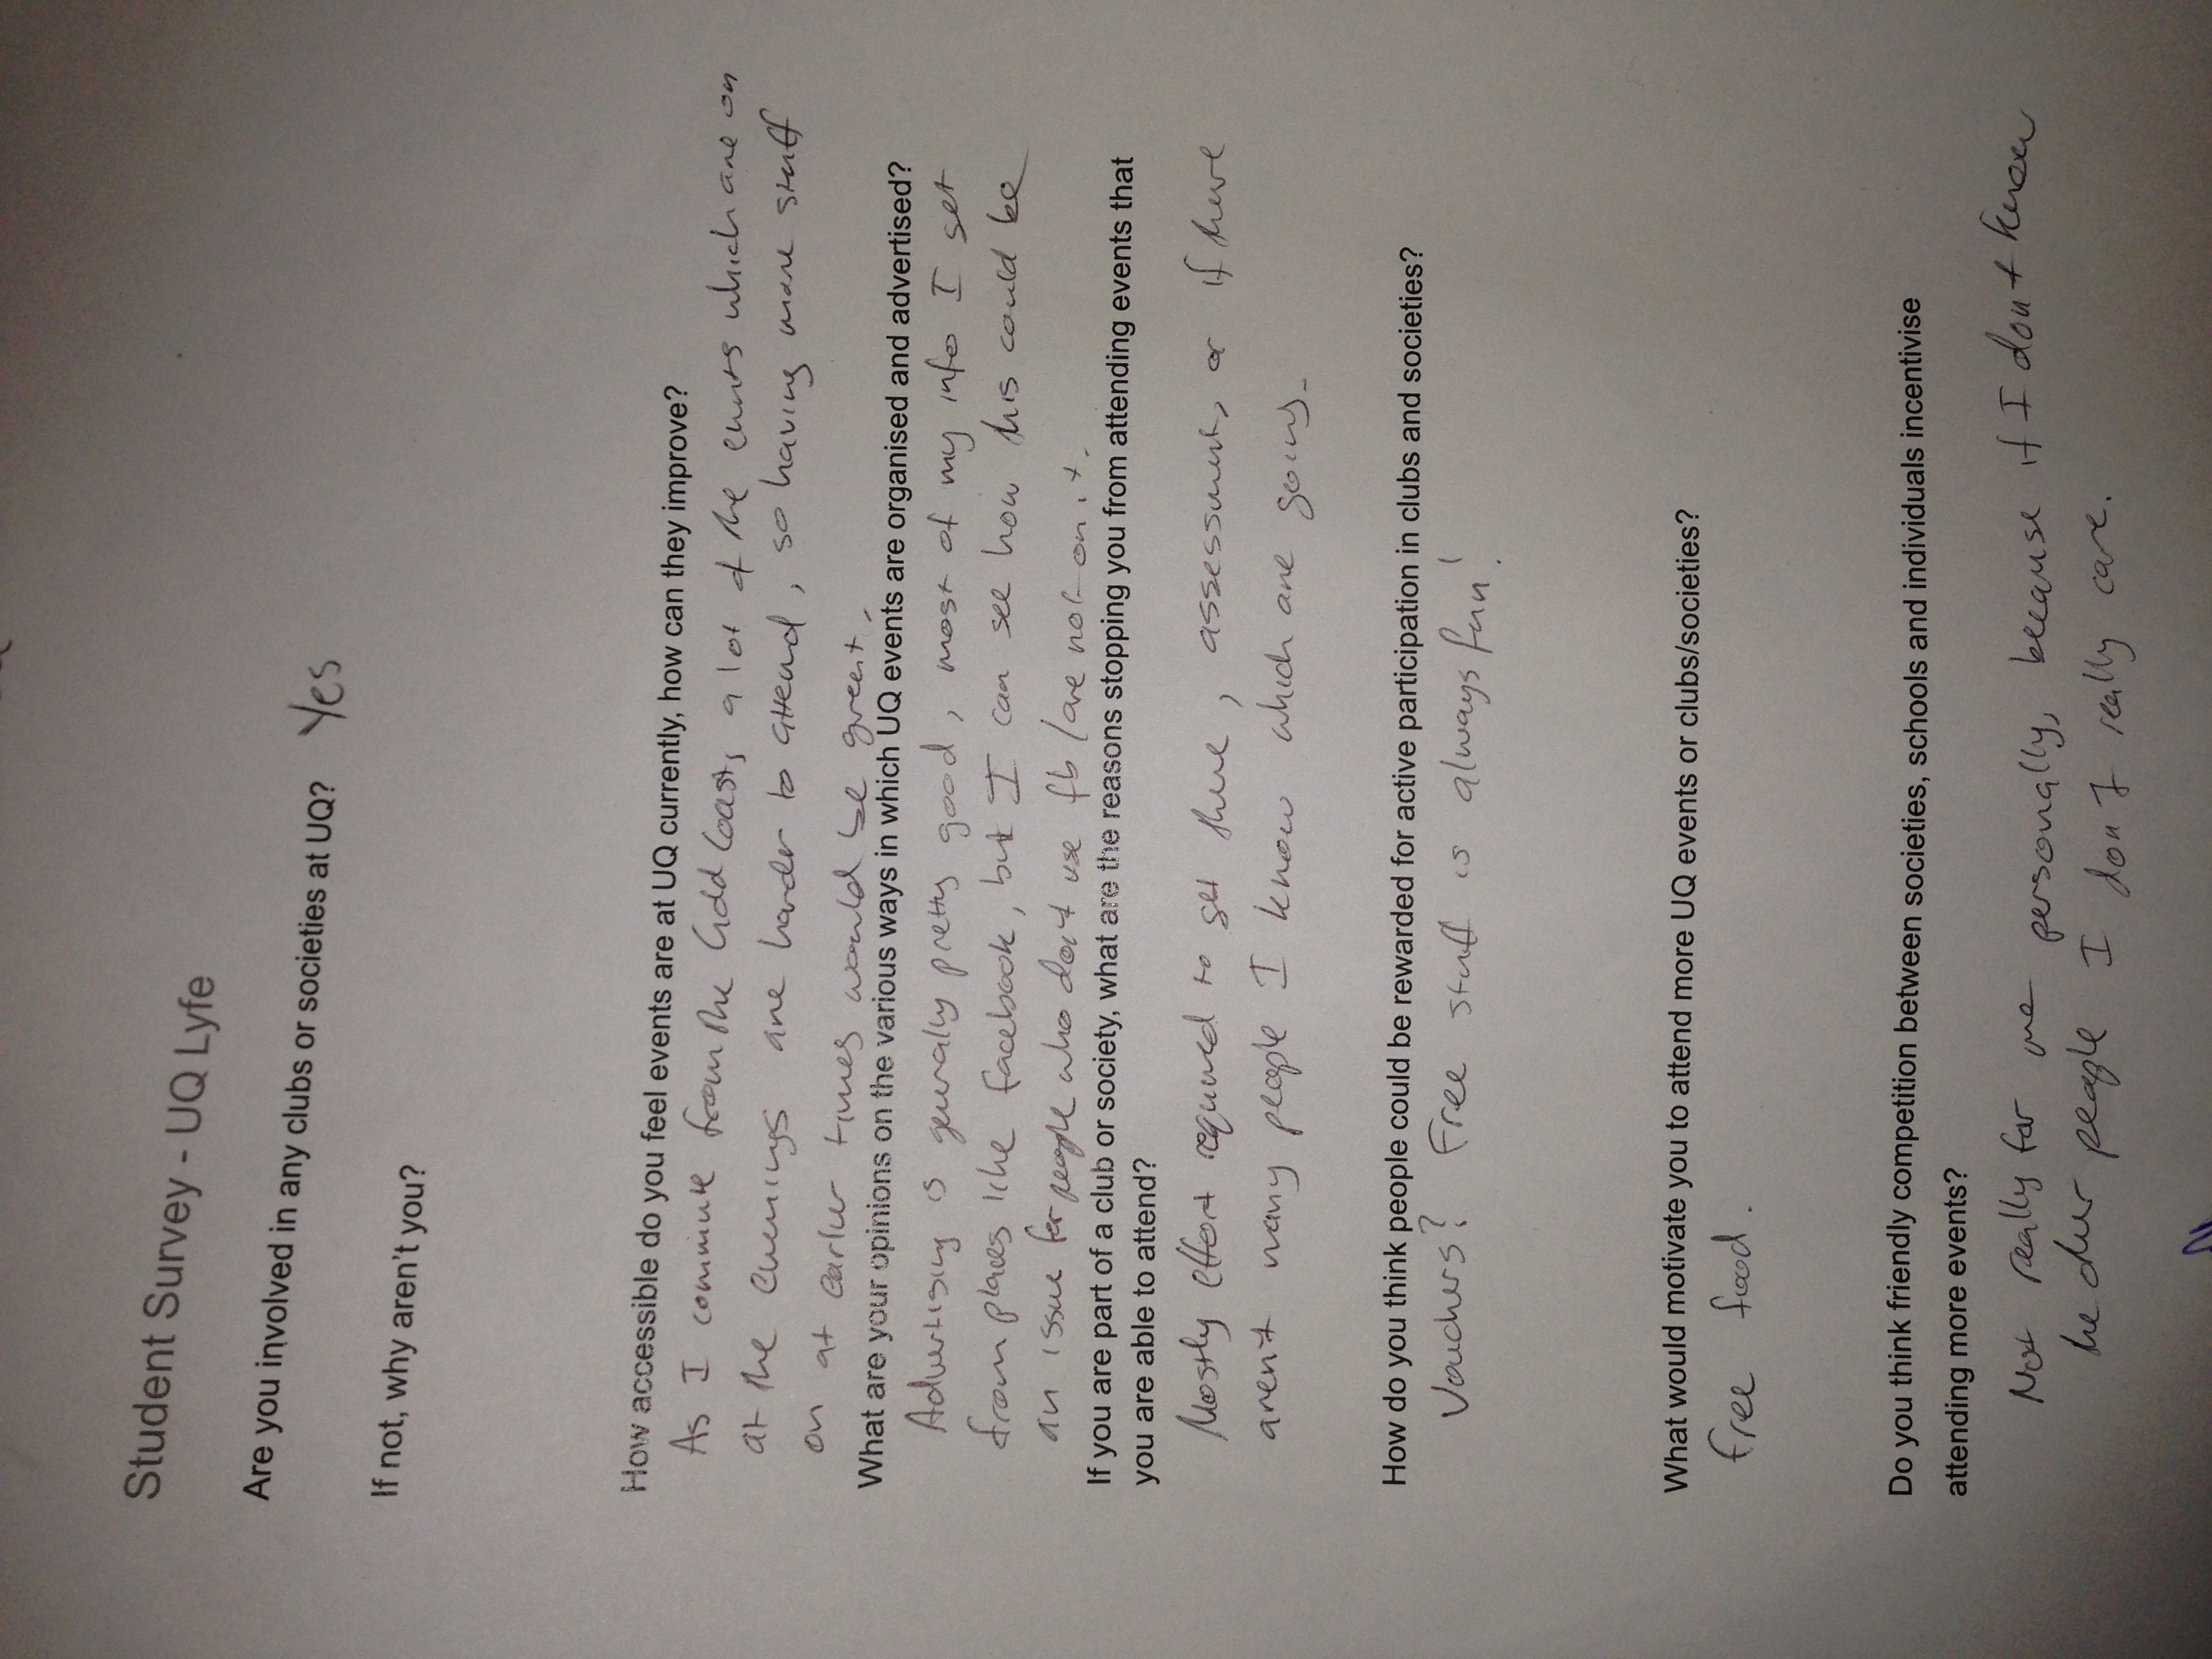 Student Survey - UQ Lyfe
Are you involved in any clubs or societies at UQ? Yes
If not, why aren't you?
How accessible do you feel events are at UQ currently, how can they improve?
As I commute from the Gold Coast, a lot of the events which are on
at the evenings are harder to attend, so having more stuff
on at earlier times would be great.
What are your opinions on the various ways in which UQ events are organised and advertised?
Advertising is generally pretty good, most of my info I get
from places like facebook, but I can see how this could be
an issue for people who don't use fb / are not on it.
If you are part of a club or society, what are the reasons stopping you from attending events that
you are able to attend?
Mostly effort required to get there, assessment, or if there
arent many people I know which are going.
How do you think people could be rewarded for active participation in clubs and societies?
Vouchers? Free stuff is always fun!
What would motivate you to attend more UQ events or clubs/societies?
Free food.
Do you think friendly competition between societies, schools and individuals incentivise
attending more events?
Not really for me personally, because if I dont know
the other people I don't really care.